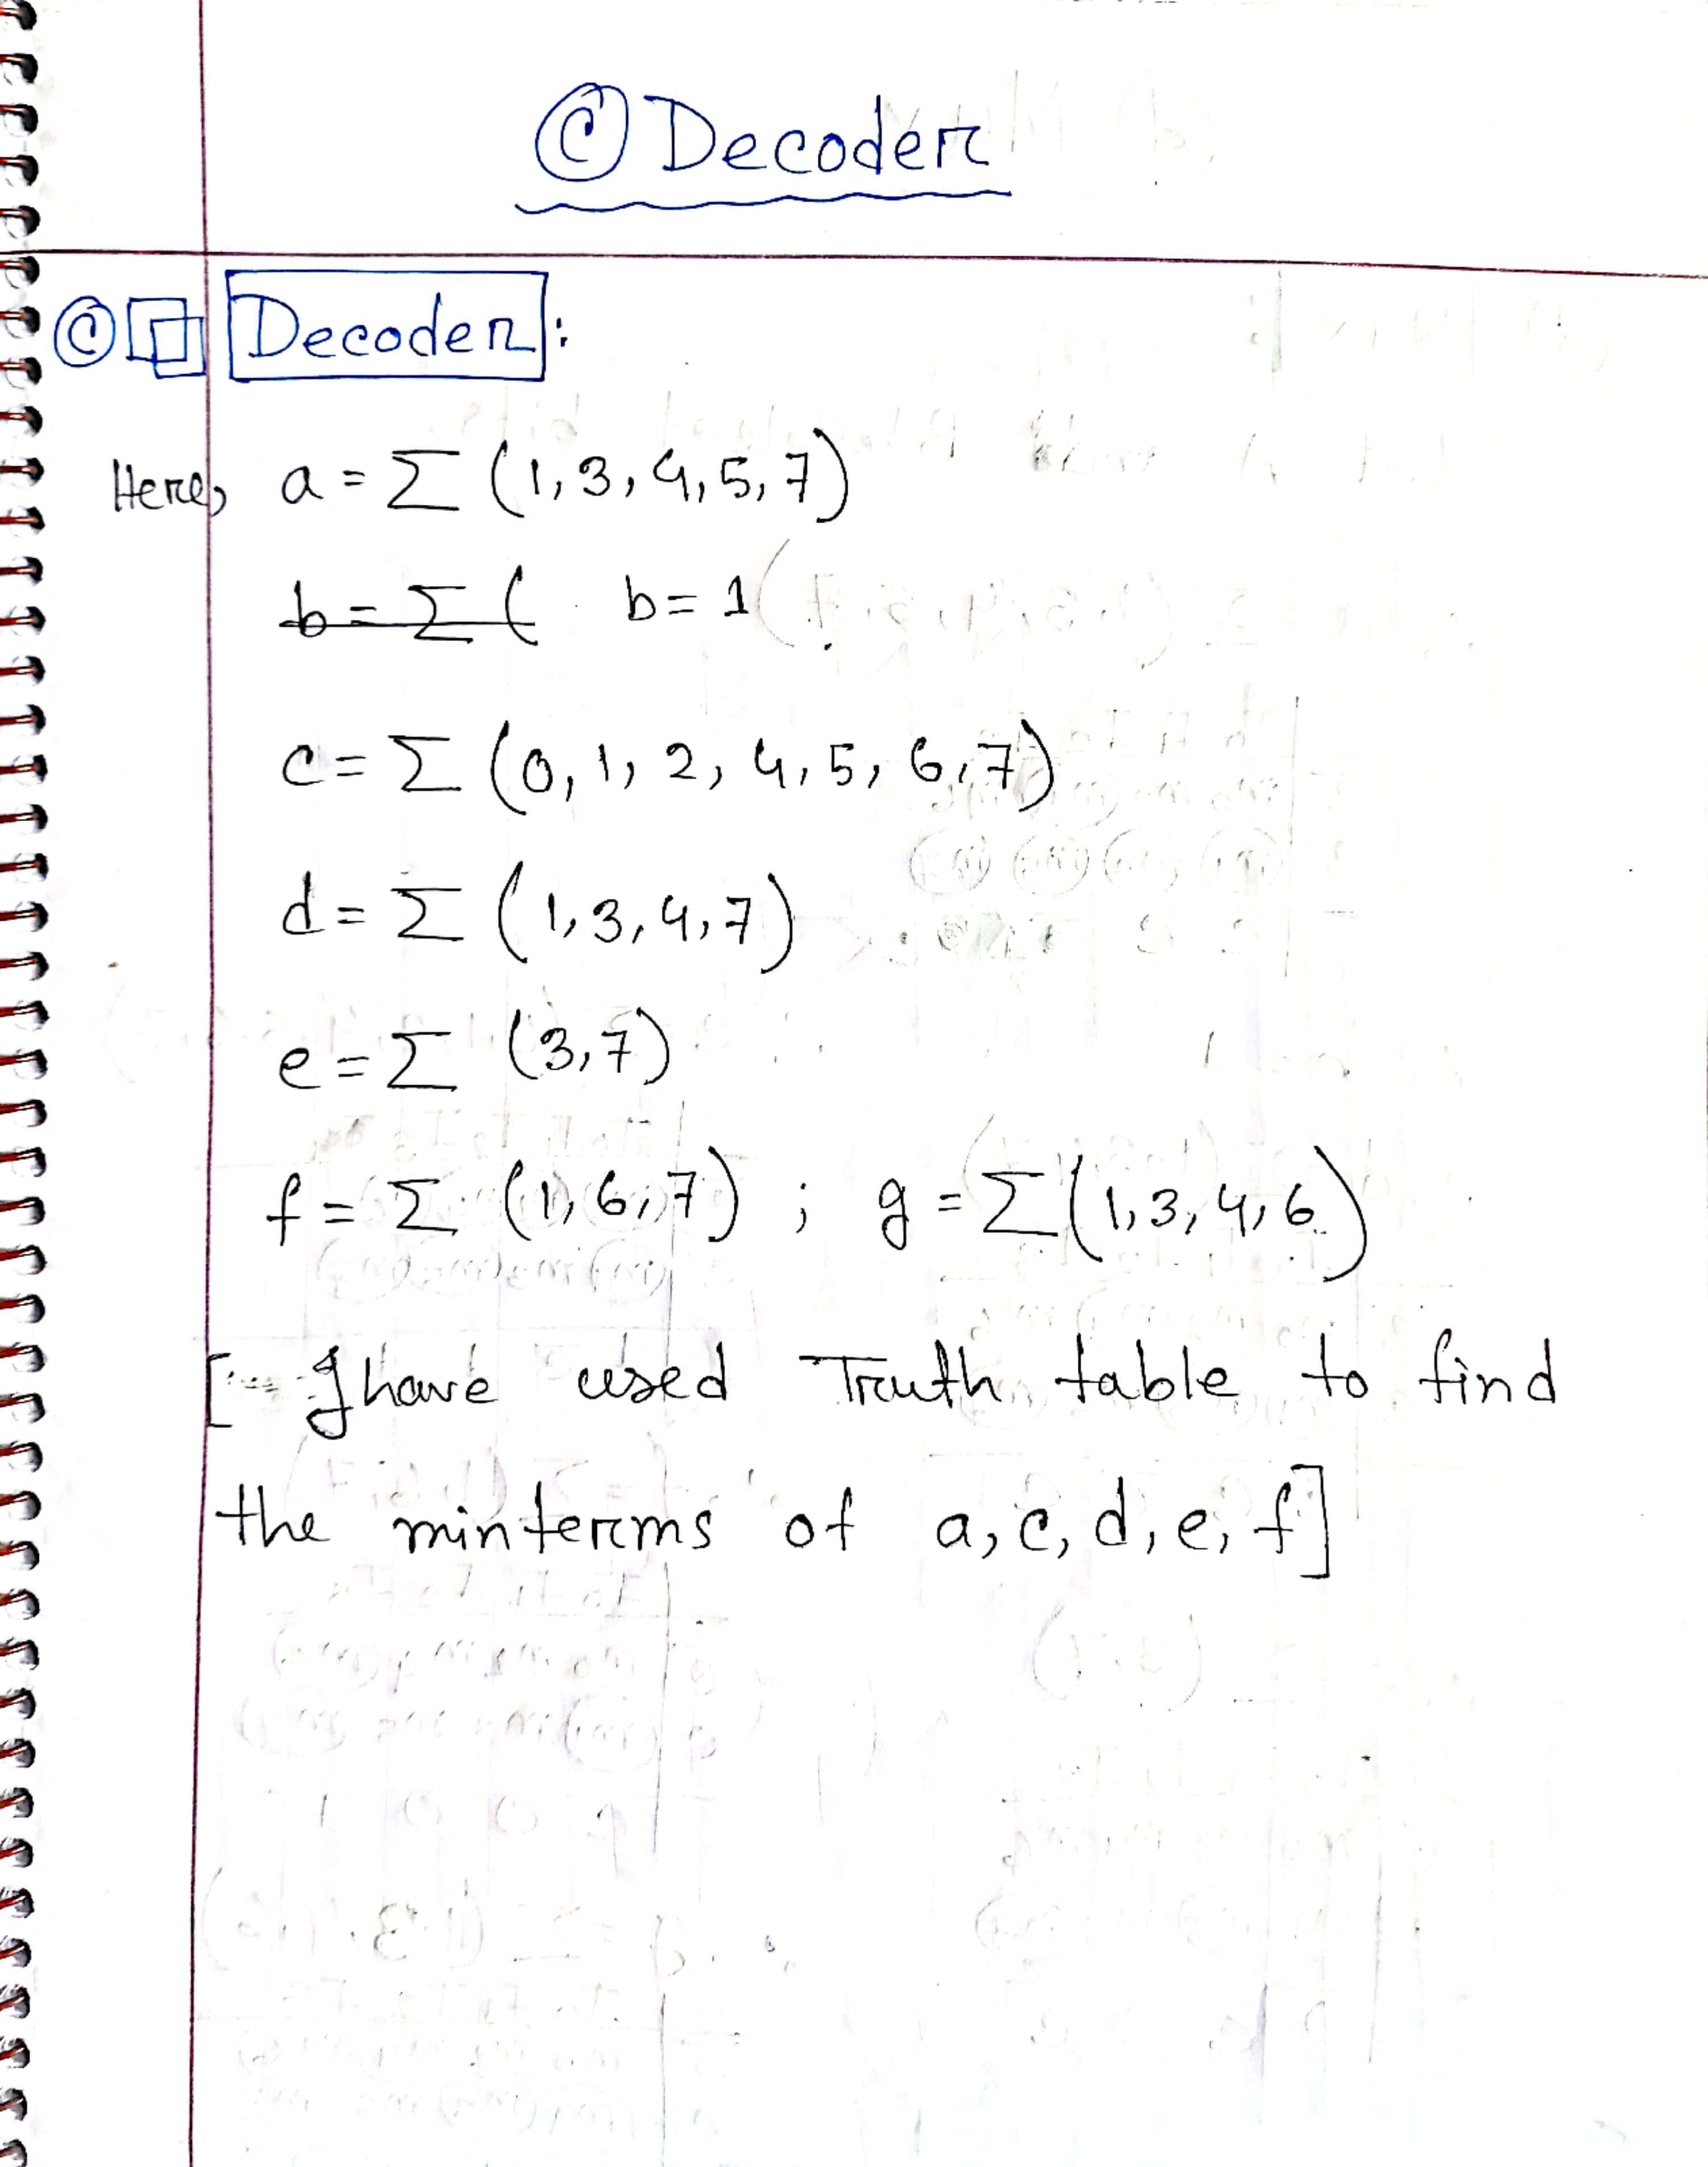 © Decoder
© Decoder:
Here, a = Σ (1, 3, 4, 5, 7)
b = Σ ( b = 1
c = Σ (0, 1, 2, 4, 5, 6, 7)
d = Σ (1, 3, 4, 7)
e = Σ (3, 7)
f = Σ (1, 6, 7) ; g = Σ (1, 3, 4, 6)
[∵ I have used Truth table to find
the minterms of a, c, d, e, f]